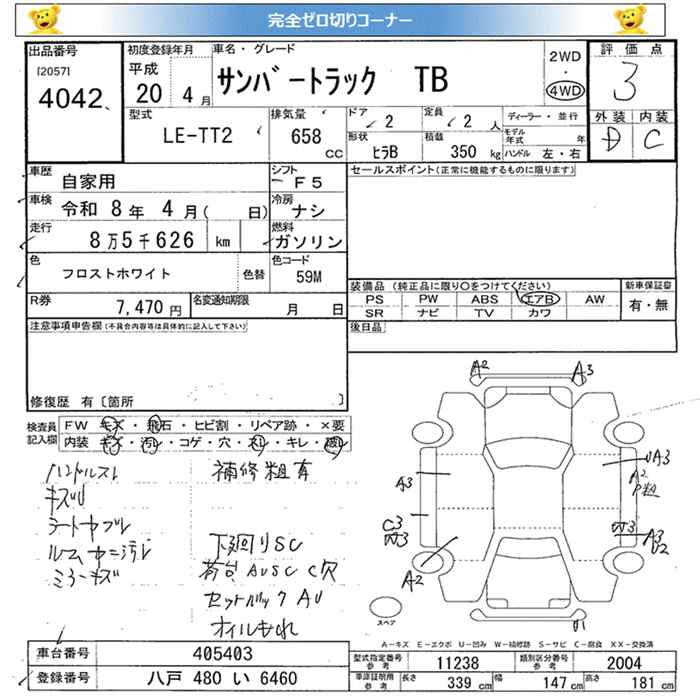 完全ゼロ切りコーナー
出品番号
[2057]
4042
初度登録年月
平成
20 4月
車名・グレード
サンバートラック TB
2WD
・
4WD
評価点
3
外装 内装
D C
型式
LE-TT2
排気量
658
CC
ドア
2
定員
2人
ディーラー・並行
モデル
年式 年
形状
ヒラB
積載
350 kg
ハンドル 左・右
車歴
自家用
シフト
F5
セールスポイント(正常に機能するものに限ります)
車検
令和 8年 4月( 日)
冷房
ナシ
走行
8万5千626 km
燃料
ガソリン
色
フロストホワイト
色替
色コード
59M
装備品 (純正品に限り○をつけてください)
新車保証書
PS PW ABS エアB AW
SR ナビ TV カワ
有・無
R券
7,470円
名変通知期限
月 日
後日品
注意事項申告欄(不具合内容等は具体的に記入して下さい)
修復歴 有〔箇所 〕
検査員
記入欄
FW キズ・飛石・ヒビ割・リペア跡・×要
内装 キズ・汚レ・コゲ・穴・スレ・キレ・
ハンドルスレ
キズU
シートヤブレ
ミラーキズ
補修粗有
下廻りSC
荷台AUSC C穴
オイルもれ
A2
A3
A3
C3
A2
UA3
A2
P粗
A3
U2
U1
スペア
A-キズ E-エクボ U-凹み W-補修跡 S-サビ C-腐食 XX-交換済
車台番号
405403
登録番号
八戸 480 い 6460
型式指定番号
参考
11238
類別区分番号
参考
2004
車庫証明用
参考
長さ 339 cm
幅 147 cm
高さ 181 cm